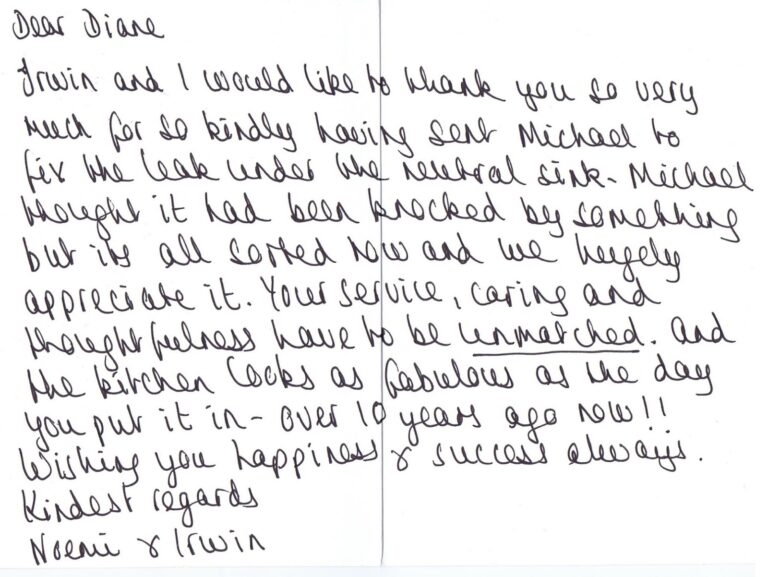 Dear Diane
Irwin and I would like to thank you so very
much for so kindly having sent Michael to
fix the leak under the neutral sink. Michael
thought it had been knocked by something
but its all sorted now and we hugely
appreciate it. Your service, caring and
thoughtfulness have to be unmatched. And
the kitchen looks as fabulous as the day
you put it in - over 10 years ago now!!
Wishing you happiness & success always.
Kindest regards
Noemi & Irwin